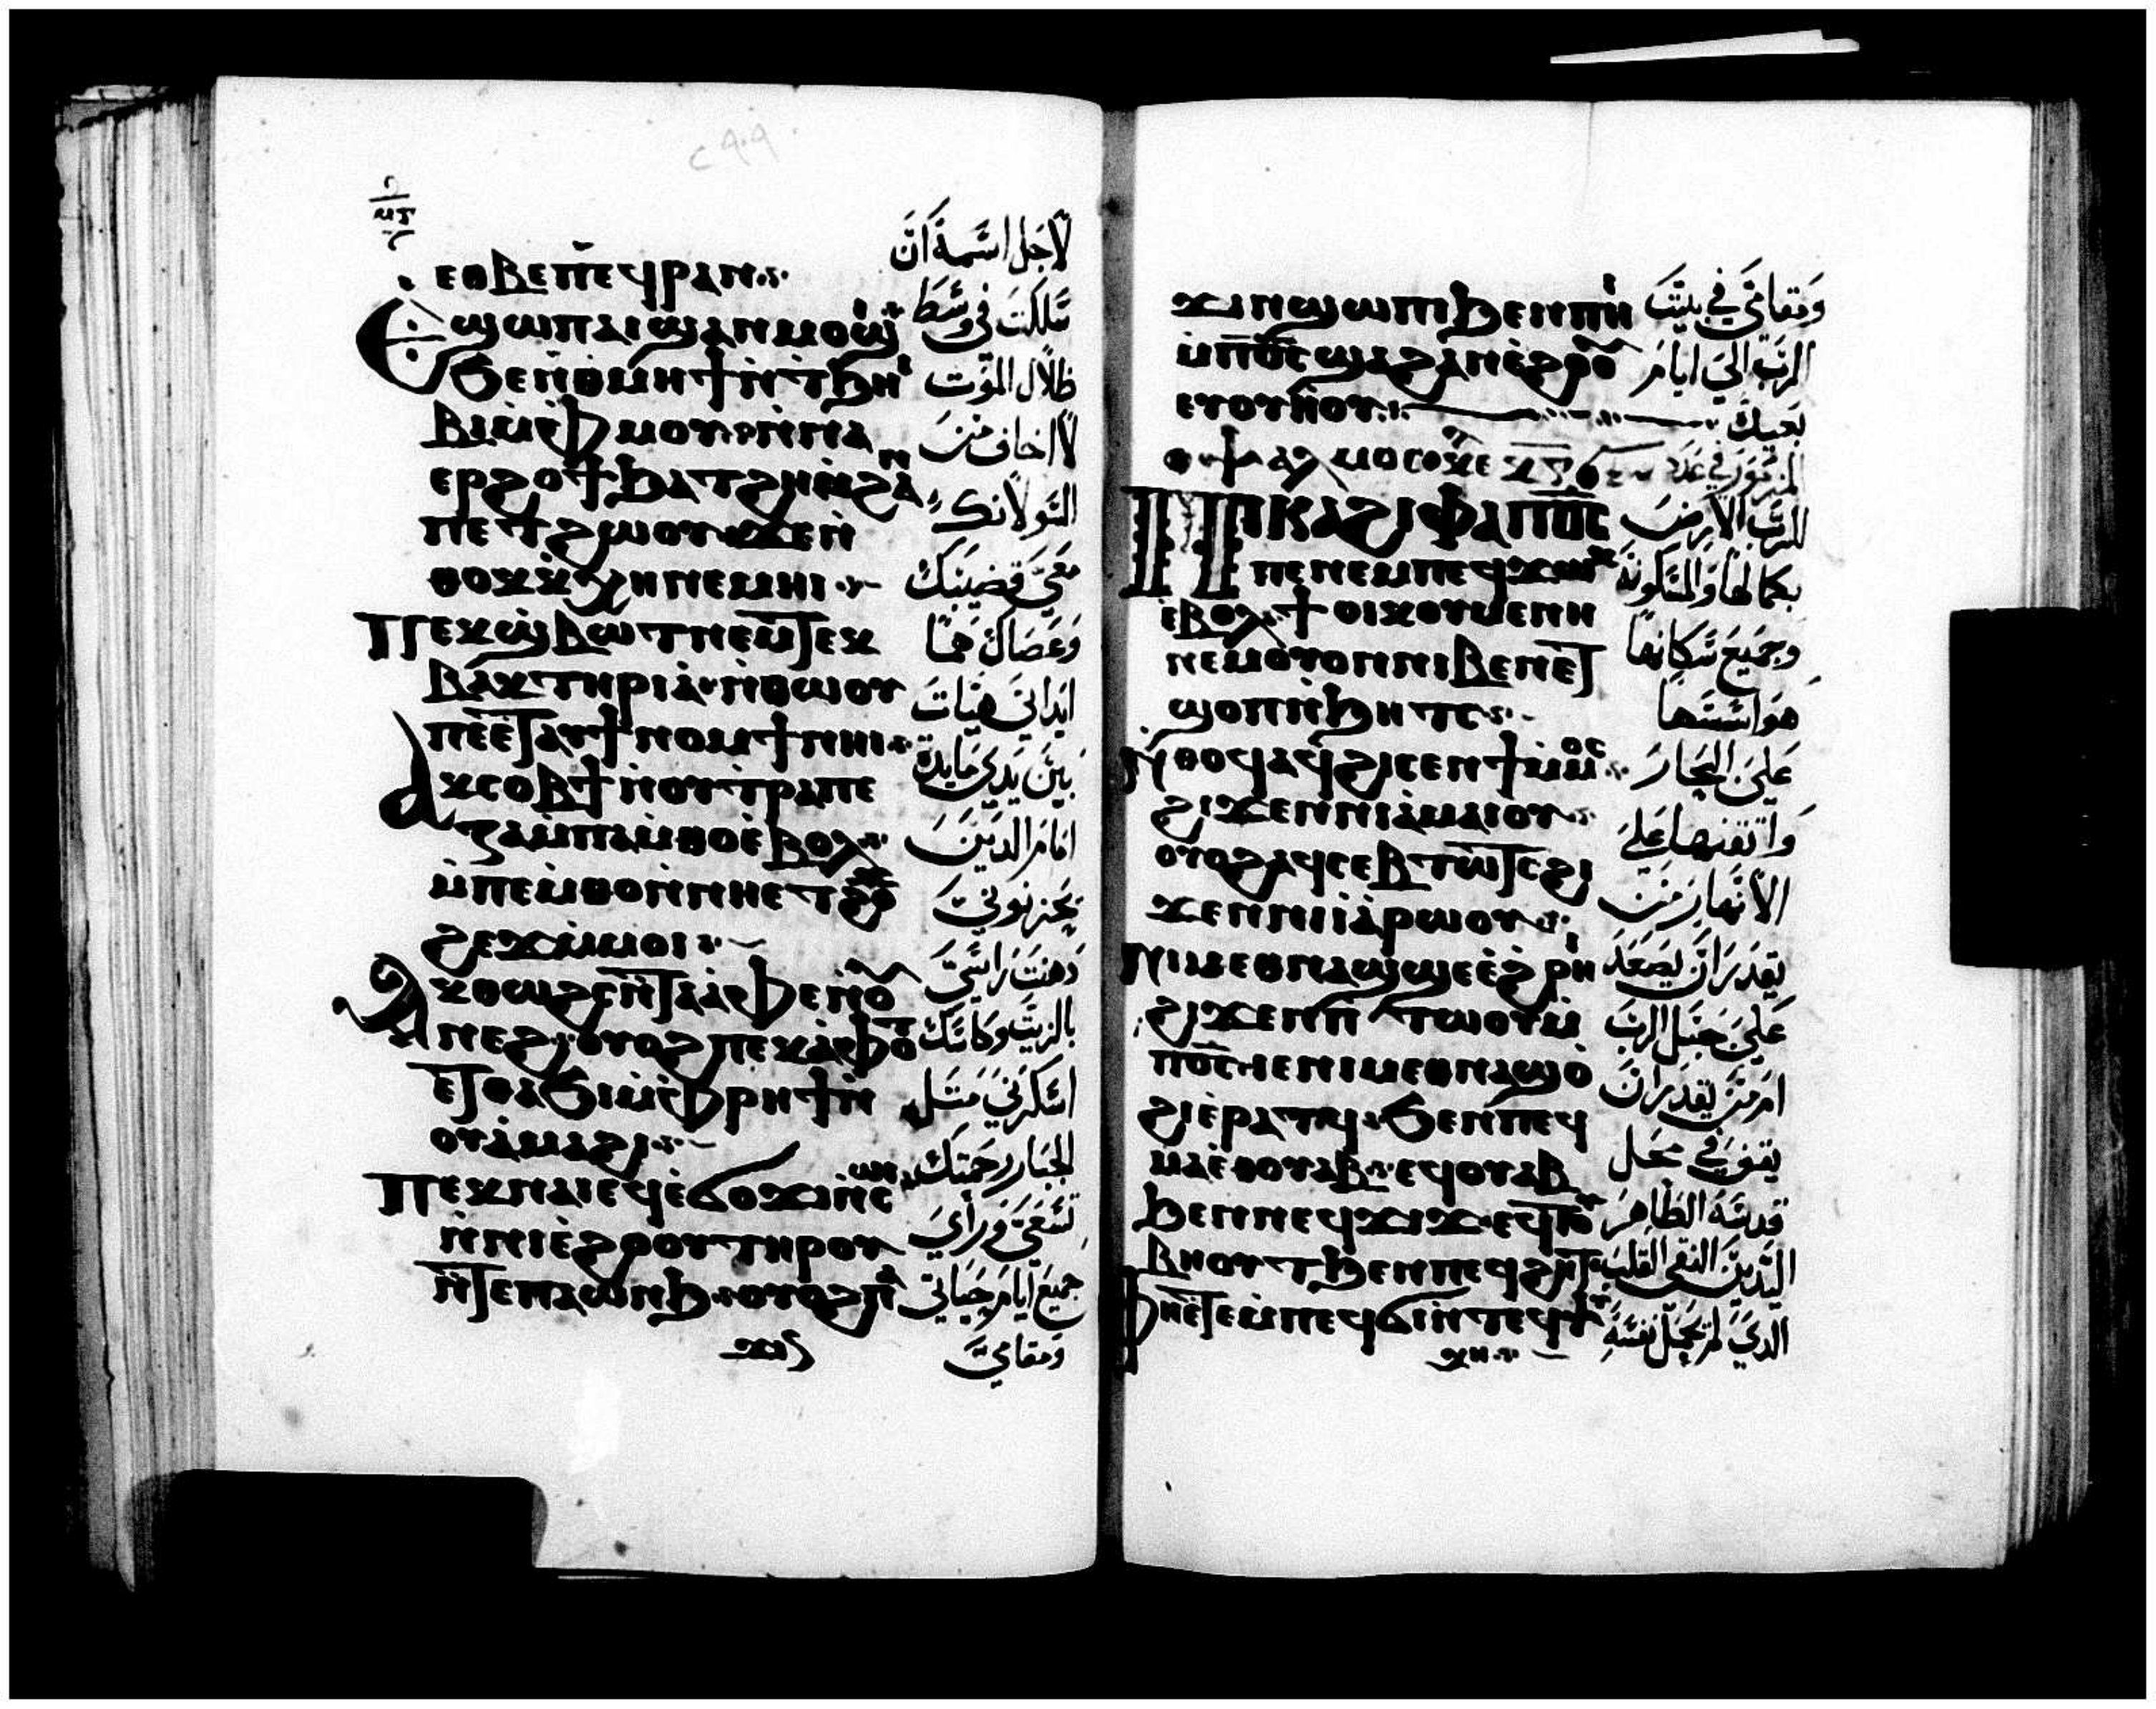 ⲉⲑⲃⲉⲡⲉϥⲣⲁⲛ
ⲉϣⲱⲡ ⲁⲓϣⲁⲛⲙⲟϣⲓ
ϧⲉⲛⲑⲙⲏϯ ⲛ̀ⲧϧⲏⲓ
ⲃⲓ ⲙ̀ⲫⲙⲟⲩ ⲛ̀ⲛⲁ
ⲉⲣϩⲟϯ ϧⲁⲧϩⲏ ⲛ̀ϩⲁⲛ
ⲡⲉⲧϩⲱⲟⲩ ϫⲉ ⲛ̀
ⲑⲟⲕ ⲕ̀ⲭⲏ ⲛⲉⲙⲏⲓ
ⲡⲉⲕϣⲃⲱⲧ ⲛⲉⲙ ⲧⲉⲕ
ⲃⲁⲕⲧⲏⲣⲓⲁ ⲛ̀ⲑⲱⲟⲩ
ⲡⲉ ⲉⲧⲁⲩϯⲛⲟⲙϯ ⲛⲏⲓ
ⲁⲕⲥⲟⲃϯ ⲛ̀ⲟⲩⲧⲣⲁⲡⲉ
ⲍⲁ ⲙ̀ⲡⲁⲙ̀ⲑⲟ ⲉ̀ⲃⲟⲗ
ⲙ̀ⲡⲉⲙ̀ⲑⲟ ⲛ̀ⲛⲏⲉⲧϩⲟ
ϩⲉϫ ⲙ̀ⲙⲟⲓ
ⲁⲕⲑⲱϩⲥ ⲛ̀ⲧⲁⲁⲫⲉ ⲛ̀ⲟⲩ
ⲛⲉϩ ⲟⲩⲟϩ ⲡⲉⲕⲁⲫⲟⲧ
ⲉⲧⲑⲁϧⲓ ⲙ̀ⲫⲣⲏϯ ⲛ̀
ⲟⲩⲁⲙⲁϩⲓ
ⲡⲉⲕⲛⲁⲓ ⲉϥⲉ̀ϭⲟϫⲓ ⲛ̀ⲥⲱⲓ
ⲛ̀ⲛⲓⲉ̀ϩⲟⲟⲩ ⲧⲏⲣⲟⲩ
ⲛ̀ⲧⲉ ⲡⲁⲱⲛϧ ⲟⲩⲟϩ ⲡⲁ
ϫⲓⲛ
لاجل اسمه ان
سلكت في وسط
ظلال الموت
لا اخاف من
السو لانك
معي قضيبك
وعصاك هما
بين يدي مايدة
امام الدين
يحزنوني
دهنت راسي
بالزيت وكاسك
اسكرني مثل
جميع ايام حياتي
ومقامي
ϫⲓⲛϣⲱⲡⲓ ϧⲉⲛ ⲡⲏⲓ
ⲙ̀ⲡϭⲟⲓⲥ ϣⲁ ϩⲁⲛⲉ̀ϩⲟⲟⲩ
ⲉⲩⲟⲩⲏⲟⲩ
ⲡⲕⲁϩⲓ ⲫⲁ ⲡϭⲟⲓⲥ
ⲡⲉ ⲛⲉⲙ ⲡⲉϥϫⲱⲕ
ⲉ̀ⲃⲟⲗ ϯⲟⲓⲕⲟⲩⲙⲉⲛⲏ
ⲛⲉⲙ ⲟⲩⲟⲛ ⲛⲓⲃⲉⲛ ⲉⲧ
ϣⲟⲡ ⲛ̀ϧⲏⲧⲥ
ⲛ̀ⲑⲟϥ ⲁϥϩⲓⲥⲉⲛϯ ⲙ̀ⲙⲟⲥ
ϩⲓϫⲉⲛ ⲛⲓⲁ̀ⲙⲁⲓⲟⲩ
ⲟⲩⲟϩ ⲁϥⲥⲉⲃⲧⲱⲧⲥ ϩⲓ
ϫⲉⲛ ⲛⲓⲓⲁⲣⲱⲟⲩ
ⲛⲓⲙ ⲉⲑⲛⲁϣϣⲉ ⲉ̀ϩⲣⲏⲓ
ϩⲓϫⲉⲛ ⲡⲧⲱⲟⲩ ⲙ̀
ⲡϭⲟⲓⲥ ⲓⲉ ⲛⲓⲙ ⲉⲑⲛⲁϣⲟ̀
ϩⲓ ⲉ̀ⲣⲁⲧϥ ϧⲉⲛ ⲡⲉϥ
ⲙⲁ ⲉⲑⲟⲩⲁⲃ ⲉϥⲟⲩⲁⲃ
ϧⲉⲛ ⲛⲉϥϫⲓϫ ⲉϥⲧⲟⲩ
ⲃⲏⲟⲩⲧ ϧⲉⲛ ⲡⲉϥϩⲏⲧ
ⲫⲏ ⲉⲧⲉ ⲙ̀ⲡⲉϥϭⲓ ⲛ̀ⲧⲉϥⲯⲩ
ⲭⲏ
ومقامي في بيت
الرب الي ايام
بعيدة
للرب الارض
بكمالها والمسكونة
وجميع سكانها
هو اسسها
علي البحار
الانهار من
يقدر ان يصعد
علي جبل الرب
امر من يقدر ان
يقف في محل
قدسه الطاهر
اليدين النقي القلب
الذي لم يجعل نفسه